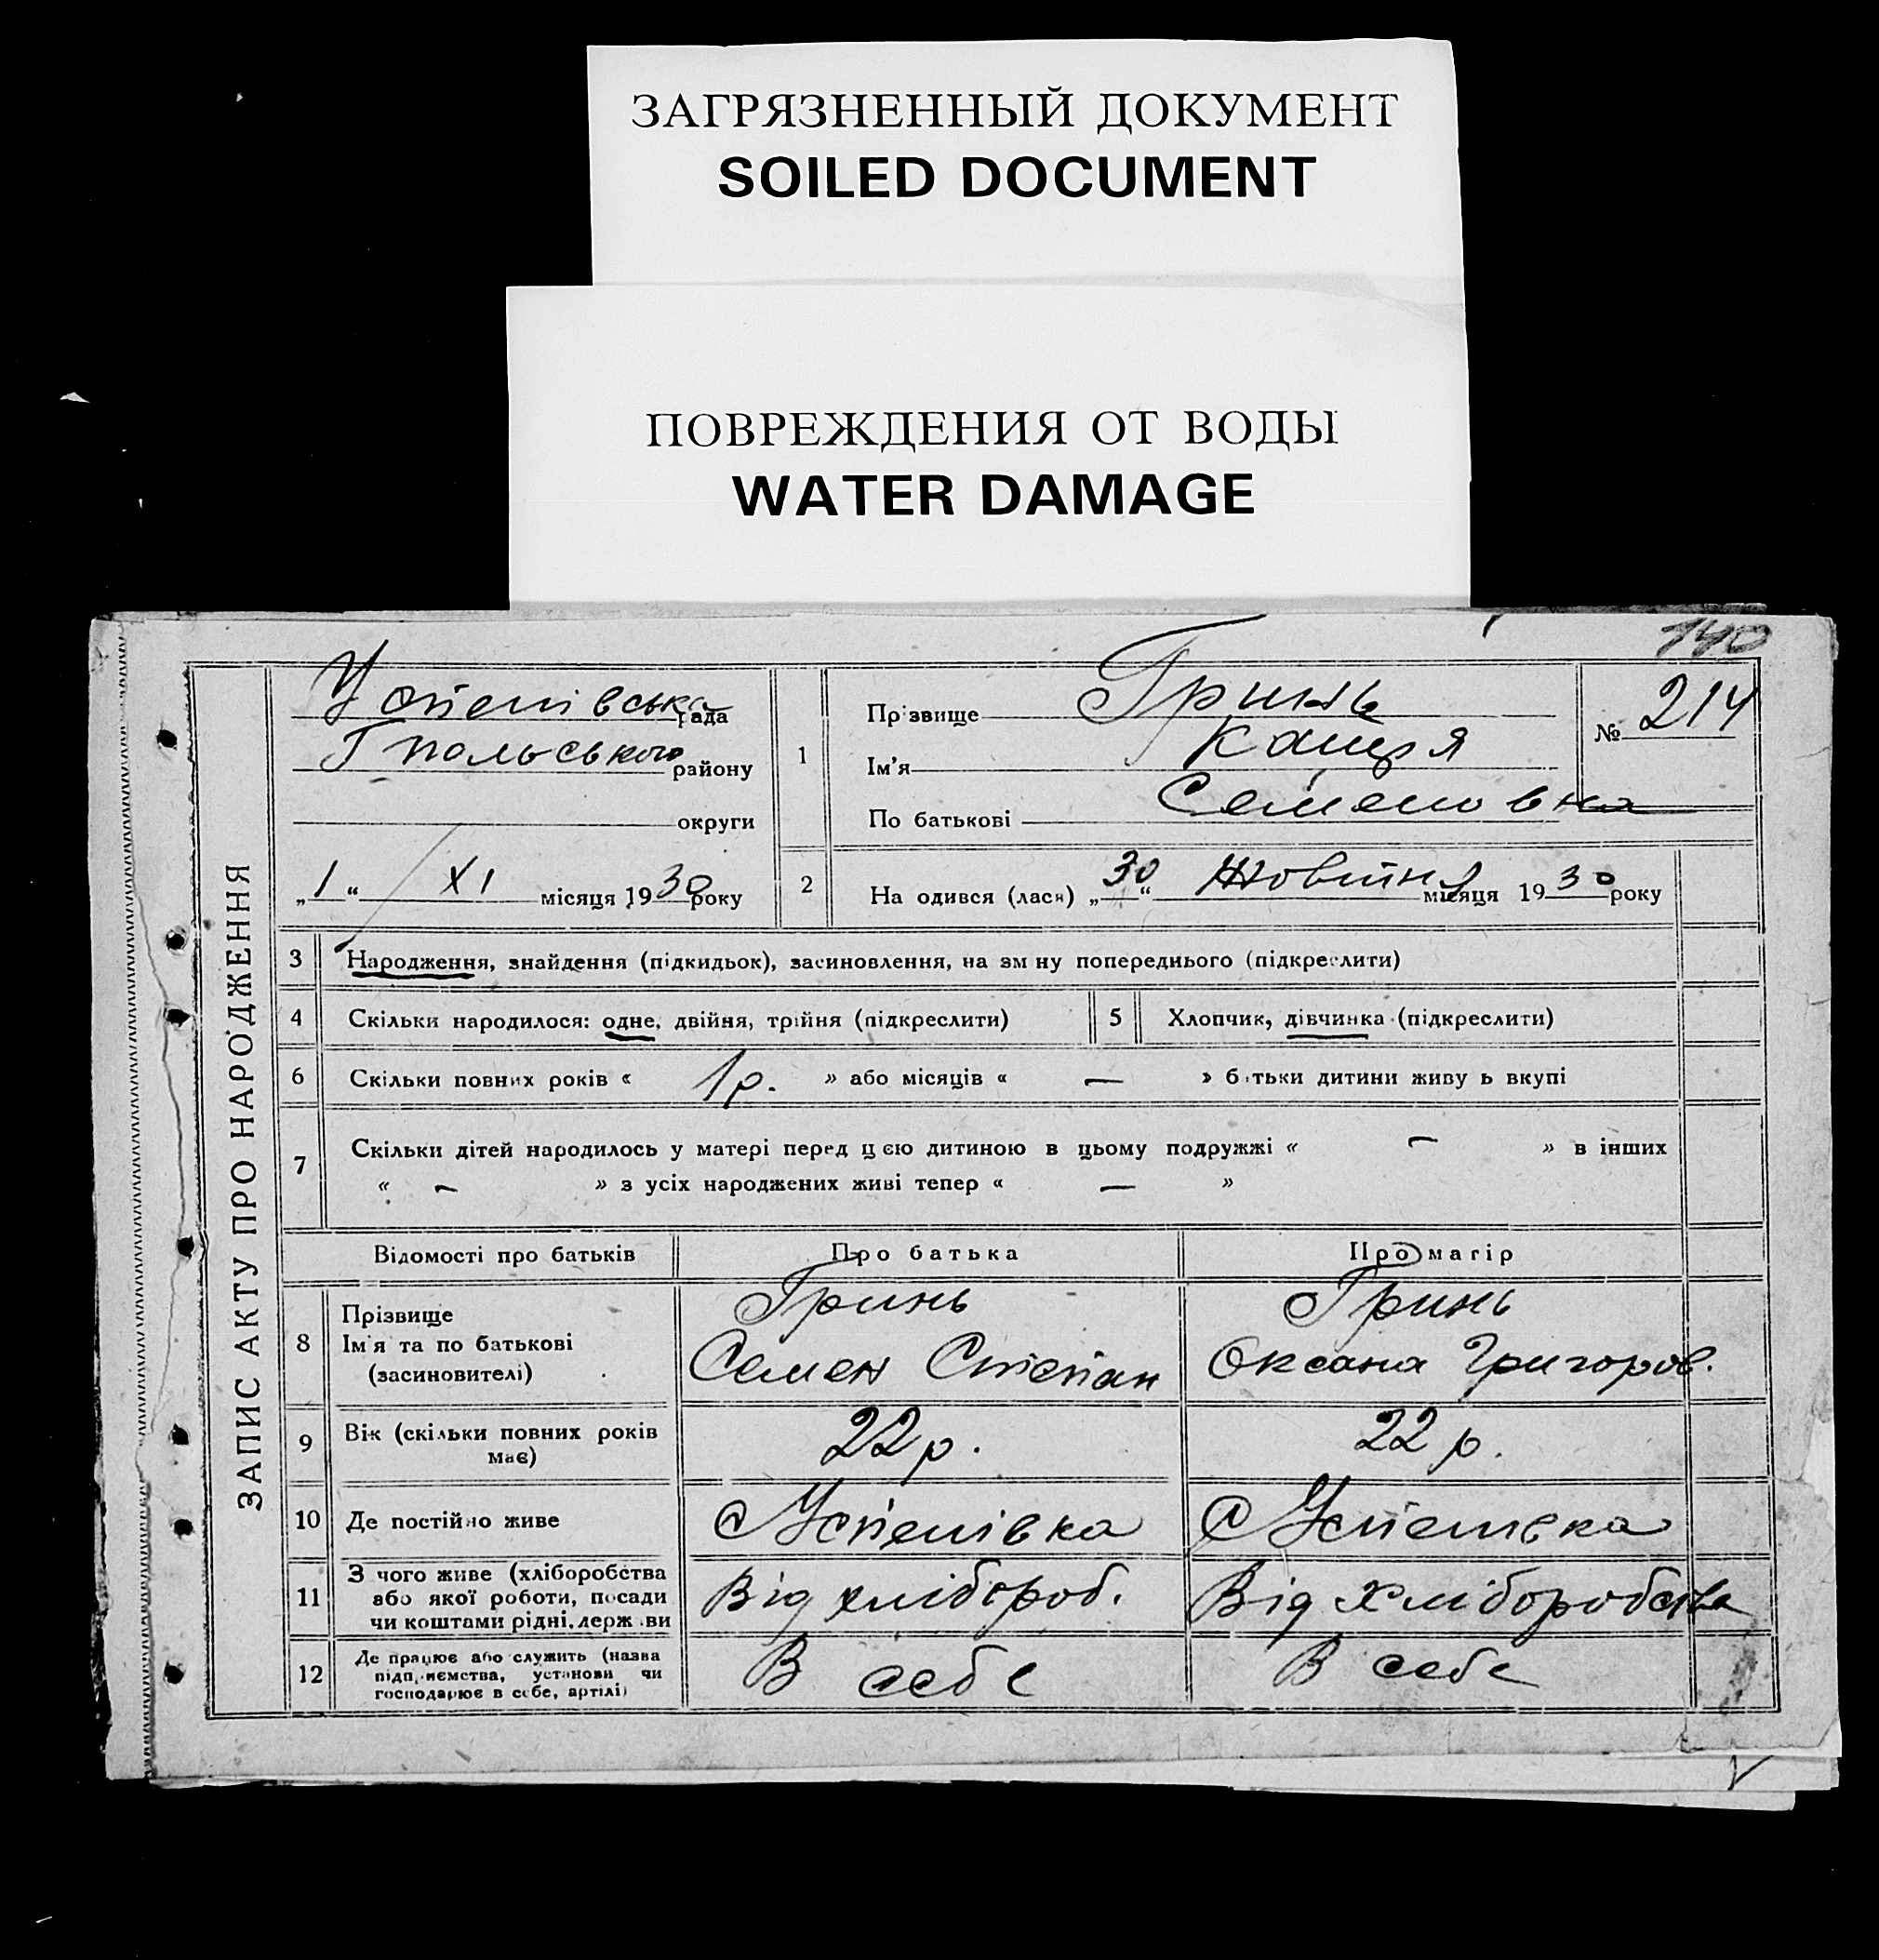 ЗАГРЯЗНЕННЫЙ ДОКУМЕНТ
SOILED DOCUMENT
ПОВРЕЖДЕНИЯ ОТ ВОДЫ
WATER DAMAGE
140
ЗАПИС АКТУ ПРО НАРОДЖЕННЯ
Успенівська рада
Гпольського району
округи
„1“ XI місяця 1930 року
1
Прізвище Гринь
Ім'я Катря
По батькові Семеновна
№ 214
2 На одився (лася) „30“ Жовтня місяця 1930 року
3 Народження, знайдення (підкидьок), засиновлення, на зм ну попереднього (підкреслити)
4 Скільки народилося: одне, двійня, трійня (підкреслити)
5 Хлопчик, дівчинка (підкреслити)
6 Скільки повних років « 1 р. » або місяців « — » б тьки дитини живу ь вкупі
7 Скільки дітей народилось у матері перед цєю дитиною в цьому подружжі « — » в інших
« — » з усіх народжених живі тепер « — »
Відомості про батьків Про батька Про матір
8 Прізвище Гринь Гринь
Ім'я та по батькові Семен Степан Оксана Григоров.
(засиновителі)
9 Вік (скільки повних років має) 22 р. 22 р.
10 Де постійно живе с Успенівка с Успенівка
11 З чого живе (хліборобства
або якої роботи, посади
чи коштами рідні, держ ви Від хлібороб. Від Хліборобства
12 Де працює або служить (назва
підприємства, установи чи
господарює в себе, артілі) В себе В себе